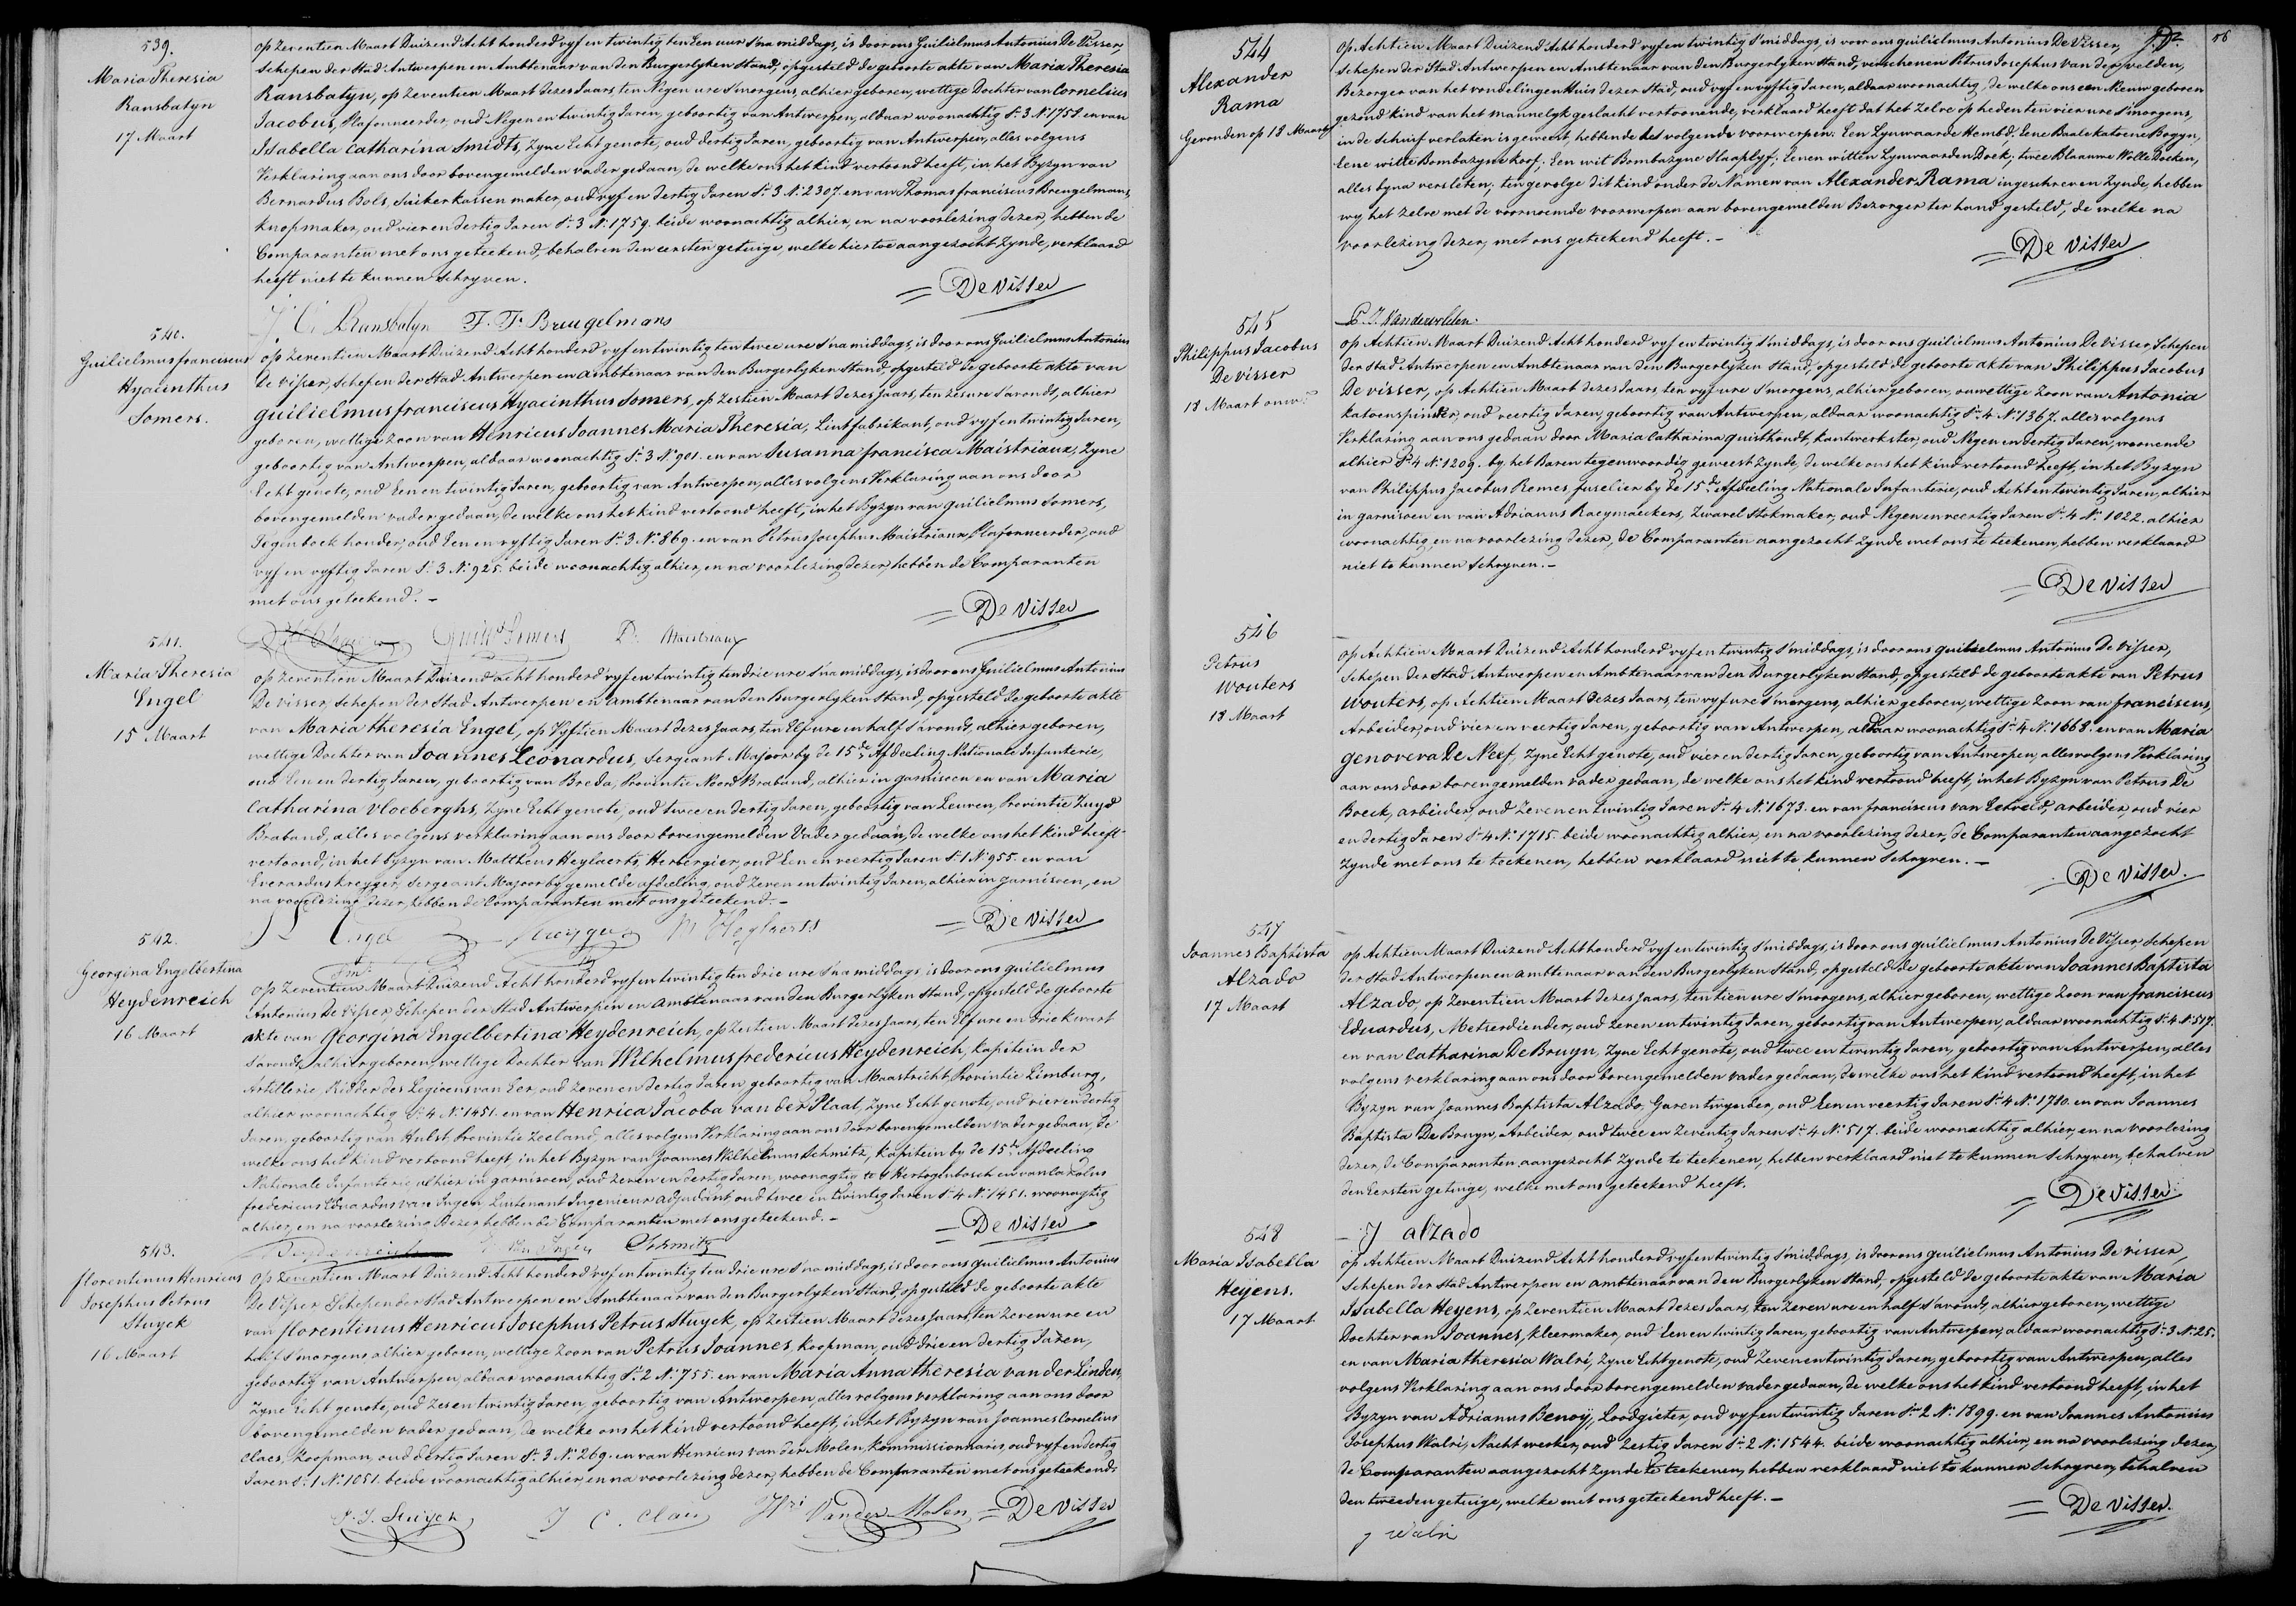 539.
Maria Theresia
Ransbatyn
17 Maart
op Zeventien Maart Duizend Acht honderd vyf en twintig ten Een uur S'na middags, is door ons Guilielmus Antonius De Visser
Schepen der Stad Antwerpen en Ambtenaar van den Burgerlyken Stand, opgesteld de geboorte akte van Maria Theresia
Ransbatyn, op Zeventien Maart dezes Jaars, ten Negen ure S'morgens, alhier geboren, wettige Dochter van Cornelius
Jacobus, Plafonneerder, oud Negen en twintig Jaren, geboortig van Antwerpen, aldaar woonachtig Sn 3 No 1759. en van
Isabella Catharina Smidts, Zyne Echt genote, oud dertig Jaren, geboortig van Antwerpen, alles volgens
Verklaring aan ons door bovengemelden vader gedaan, de welke ons het kind vertoond heeft, in het Byzyn van
Bernardus Bols, Suiker kassen maker, oud vyf en dertig Jaren Sn 3 No 2307. en van Thomas franciscus Breugelmans,
knopmaker, oud vier en dertig Jaren Sn 3 No 1759. beide woonachtig alhier, en na voorlezing dezer, hebben de
Comparanten met ons geteekend, behalven den eersten getuige, welke hiertoe aangezocht Zynde, verklaard
heeft niet te kunnen Schryven.
De Visser
J. C. Ransbatyn F. F. Breugelmans
540.
Guilielmus franciscus
Hyacinthus
Somers.
op Zeventien Maart Duizend Acht honderd vyf en twintig ten twee ure S'na middags, is door ons Guilielmus Antonius
De Visser, Schepen der Stad Antwerpen en Ambtenaar van den Burgerlyken Stand, opgesteld de geboorte akte van
Guilielmus franciscus Hyacinthus Somers, op Zestien Maart dezes Jaars, ten zes ure S'avonds, alhier
geboren, wettige Zoon van Henricus Joannes Maria Theresia, Lintfabrikant, oud vyf en twintig Jaren,
geboortig van Antwerpen, aldaar woonachtig Sn 3 No 901. en van Susanna francisca Maistriaux, Zyne
Echt genote, oud Een en twintig Jaren, geboortig van Antwerpen, alles volgens Verklaring aan ons door
bovengemelden vader gedaan, de welke ons het kind vertoond heeft, in het Byzyn van guilielmus Somers,
Tegenboek houder, oud Een en vyftig Jaren Sn 3. No 869. en van Petrus Josephus Maistriaux Plafonneerder, oud
vyf en vyftig Jaren Sn 3 No 925. beide woonachtig alhier, en na voorlezing dezer, hebben de Comparanten
met ons geteekend. –
De Visser
Guills Somers Maistriaux
541.
Maria Theresia
Engel
15 Maart
op Zeventien Maart Duizend Acht honderd vyf en twintig ten drie ure S'na middags, is door ons Guilielmus Antonius
De Visser, Schepen der Stad Antwerpen en Ambtenaar van den Burgerlyken Stand, opgesteld de geboorte akte
van Maria theresia Engel, op Vyftien Maart dezes Jaars, ten Elf ure en half S'avonds, alhier geboren,
wettige Dochter van Joannes Leonardus, Sergiant Majoor by de 15de Afdeeling Nationale Infanterie,
oud Een en dertig Jaren, geboortig van Breda, Provintie Noord Braband, alhier in garnisoen en van Maria
Catharina Vloeberghs, Zyne Echt genote, oud twee en dertig Jaren, geboortig van Leuven, Provintie Zuyd
Braband, alles volgens verklaring aan ons door bovengemelden Vader gedaan, de welke ons het kind heeft
vertoond, in het byzyn van Mattheus Heylaerts, Herbergier, oud Een en veertig Jaren Sn 1 No 955. en van
Everardus Kreyger, Sergeant Majoor by gemelde afdeeling, oud Zeven en twintig Jaren, alhier in garnisoen, en
na voorlezing dezer, hebben de Comparanten met ons geteekend. –
De Visser
Engel Kreyger M Heylaerts
542.
Georgina Engelbertina
Heydenreich
16 Maart
op Zeventien Maart Duizend Acht honderd vyf en twintig ten drie ure S'na middags, is door ons guilielmus
Antonius De Visser, Schepen der Stad Antwerpen en Ambtenaar van den Burgerlyken Stand, opgesteld de geboorte
akte van Georgina Engelbertina Heydenreich, op Zestien Maart dezes Jaars, ten Elf ure en drie kwart
S'avonds, alhier geboren, wettige Dochter van Wilhelmus fredericus Heydenreich, Kapitein der
Artillerie, Ridder des Legioens van Eer, oud Zeven en dertig Jaren, geboortig van Maastricht, Provintie Limburg,
alhier woonachtig Sn 4 No 1451. en van Henrica Jacoba van der Plaat, Zyne Echt genote, oud vier en dertig
Jaren, geboortig van Hulst, Provintie Zeeland, alles volgens Verklaring aan ons door bovengemelden vader gedaan, de
welke ons het kind vertoond heeft, in het Byzyn van Joannes Wilhelmus Schmitz, Kapitein by de 15de Afdeeling
Nationale Infanterie, alhier in garnisoen, oud zeven en dertig Jaren, woonagtig te s'Hertogenbosch en van Carolus
fredericus Eduardus van Ingen, Lieutenant Ingenieur adjudant oud twee en twintig Jaren Sn 4 No 1451. woonagtig
alhier, en na voorlezing dezer, hebben de Comparanten met ons geteekend. –
De Visser
Heydenreich Van Ingen Schmitz
543.
florentinus Henricus
Josephus Petrus
Stuyck
16 Maart
op Zeventien Maart Duizend Acht honderd vyf en twintig ten drie ure S'na middags, is door ons guilielmus Antonius
De Visser Schepen der Stad Antwerpen en Ambtenaar van den Burgerlyken Stand, opgesteld de geboorte akte
van florentinus Henricus Josephus Petrus Stuyck, op Zestien Maart dezes Jaars, ten Zeven ure en
half S'morgens, alhier geboren, wettige Zoon van Petrus Joannes, koopman, oud drie en dertig Jaren,
geboortig van Antwerpen, aldaar woonachtig Sn 2 No 755. en van Maria Anna theresia van der Linden,
Zyne Echt genote, oud Zes en twintig Jaren, geboortig van Antwerpen, alles volgens verklaring aan ons door
bovengemelden vader gedaan, de welke ons het kind vertoond heeft, in het Byzyn van Joannes Cornelius
Claes, Koopman, oud dertig Jaren Sn 3 No 269. en van Henricus van der Molen, Kommissionnaris, oud vyf en dertig
Jaren Sn 1 No 1051. beide woonachtig alhier, en na voorlezing dezer, hebben de Comparanten met ons geteekend.
P. J. Stuyck J C. Claes Hri Vander Molen De Visser
56
544
Alexander
Rama
Gevonden op 18 Maart
op Achtien Maart Duizend Acht honderd vyf en twintig S'middags, is voor ons guilielmus Antonius De Visser,
Schepen der Stad Antwerpen en Ambtenaar van den Burgerlyken Stand, verschenen Petrus Josephus van der velden,
Bezorger van het vondelingen Huis dezer Stad, oud vyf en vyftig Jaren, aldaar woonachtig, de welke ons een Nieuw geboren
gezond kind van het mannelyk geslacht vertoonende, verklaard heeft dat het Zelve op heden ten vier ure S'morgens,
in de Schuif verlaten is geweest, hebbende des volgende voorwerpen: Een Lynwaarde Hembd, Eene Baale katoene Bogyn,
Eene witte Bombazyne koof, Een wit Bombazyne Slaaplyf, Eenen witten Lynwaarden Doek, twee Blaauwe Wolle Doeken,
alles byna versleten; ten gevolge dit kind onder de Namen van Alexander Rama ingeschreven Zynde, hebben
wy het zelve met de voornoemde voorwerpen aan bovengemelden Bezorger ter hand gesteld, de welke na
voorlezing dezer, met ons geteekend heeft. –
De Visser
P. J. Vandervelden.
545
Philippus Jacobus
De Visser
18 Maart onw.
op Achtien Maart Duizend Acht honderd vyf en twintig S'middags, is door ons guilielmus Antonius De Visser, Schepen
der Stad Antwerpen en Ambtenaar van den Burgerlyken Stand, opgesteld de geboorte akte van Philippus Jacobus
De visser, op Achtien Maart dezes Jaars, ten vyf ure S'morgens, alhier geboren, onwettige Zoon van Antonia
katoenspinder, oud veertig Jaren, geboortig van Antwerpen, aldaar woonachtig Sn 4 No 1367. alles volgens
Verklaring aan ons gedaan door Maria Catharina Quisthoudt, kantwerkster, oud Negen en dertig Jaren, woonende
alhier Sn 4 No 1209. by het Baren tegenwoordig geweest Zynde, de welke ons het kind vertoond heeft, in het Byzyn
van Philippus Jacobus Remes, fuselier by de 15de Afdeeling Nationale Infanterie, oud Acht en twintig Jaren, alhier
in garnisoen en van Adrianus Raeymaeckers, Zwavel Stokmaker, oud Negen en veertig Jaren Sn 4 No 1022. alhier
woonachtig, en na voorlezing dezer, de Comparanten aangezocht Zynde met ons te teekenen, hebben verklaard
niet te kunnen Schryven. –
De Visser
546
Petrus
Wouters
18 Maart
op Achtien Maart Duizend Acht honderd vyf en twintig S'middags, is door ons guilielmus Antonius De Visser,
Schepen der Stad Antwerpen en Ambtenaar van den Burgerlyken Stand, opgesteld de geboorte akte van Petrus
Wouters, op Achtien Maart dezes Jaars, ten vyf ure S'morgens, alhier geboren, wettige Zoon van franciscus,
Arbeider, oud vier en veertig Jaren, geboortig van Antwerpen, aldaar woonachtig Sn 4 No 1668. en van Maria
genoveva De Neef, Zyne Echt genote, oud vier en dertig Jaren, geboortig van Antwerpen, alles volgens Verklaring
aan ons door bovengemelden vader gedaan, de welke ons het kind vertoond heeft, in het Byzyn van Petrus De
Boeck, arbeider, oud Zeven en twintig Jaren Sn 4 No 1673. en van franciscus van Eetveld, arbeider, oud vier
en dertig Jaren Sn 4 No 1715. beide woonachtig alhier, en na voorlezing dezer, de Comparanten aangezocht
Zynde met ons te teekenen, hebben verklaard niet te kunnen Schryven. –
De Visser.
547
Joannes Baptista
Alzado
17 Maart
op Achtien Maart Duizend Acht honderd vyf en twintig S'middags, is door ons guilielmus Antonius De Visser, Schepen
der Stad Antwerpen en Ambtenaar van den Burgerlyken Stand, opgesteld de geboorte akte van Joannes Baptista
Alzado op Zeventien Maart dezes Jaars, ten tien ure S'morgens, alhier geboren, wettige Zoon van franciscus
Eduardus, Metserdiender, oud zeven en twintig Jaren, geboortig van Antwerpen, aldaar woonachtig Sn 4 No 517.
en van Catharina De Bruyn, Zyne Echt genote, oud twee en twintig Jaren, geboortig van Antwerpen, alles
volgens verklaring aan ons door bovengemelden vader gedaan, de welke ons het kind vertoond heeft, in het
Byzyn van Joannes Baptista Alzado, Garentwynder, oud Een en veertig Jaren Sn 4 No 1780. en van Joannes
Baptista De Bruyn, Arbeider, oud twee en Zeventig Jaren Sn 4 No 517. beide woonachtig alhier, en na voorlezing
dezer, de Comparanten aangezocht Zynde te teekenen, hebben verklaard niet te kunnen Schryven, behalven
den Eersten getuige, welke met ons geteekend heeft.
De Visser
J alzado
548
Maria Isabella
Heyens.
17 Maart
op Achtien Maart Duizend Acht honderd vyf en twintig S'middags, is door ons guilielmus Antonius De Visser,
Schepen der Stad Antwerpen en Ambtenaar van den Burgerlyken Stand, opgesteld de geboorte akte van Maria
Isabella Heyens, op Zeventien Maart dezes Jaars, ten Zeven ure en half S'avonds, alhier geboren, wettige
Dochter van Joannes, kleermaker, oud Een en twintig Jaren, geboortig van Antwerpen, aldaar woonachtig Sn 3 No 25.
en van Maria theresia Walri, Zyne Echt genote, oud Zeven en twintig Jaren, geboortig van Antwerpen, alles
volgens Verklaring aan ons door bovengemelden vader gedaan, de welke ons het kind vertoond heeft, in het
Byzyn van Adrianus Benoÿ, Loodgieter, oud vyf en twintig Jaren Sn 2 No 1899. en van Joannes Antonius
Josephus Walri, Nacht werker, oud Zestig Jaren Sn 2 No 1544. beide woonachtig alhier, en na voorlezing dezer,
de Comparanten aangezocht Zynde te teekenen, hebben verklaard niet te kunnen Schryven, behalven
den tweeden getuige, welke met ons geteekend heeft. –
De Visser.
J Walri